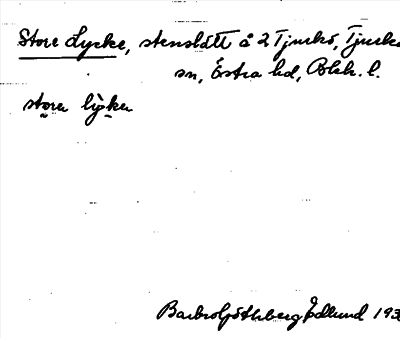 Store Lycke, stenslätt å 2 Tjurkö, Tjurkö
sn, Östra hd, Blek. l.
stora lỳkən
Barbro Göthberg Edlund 193